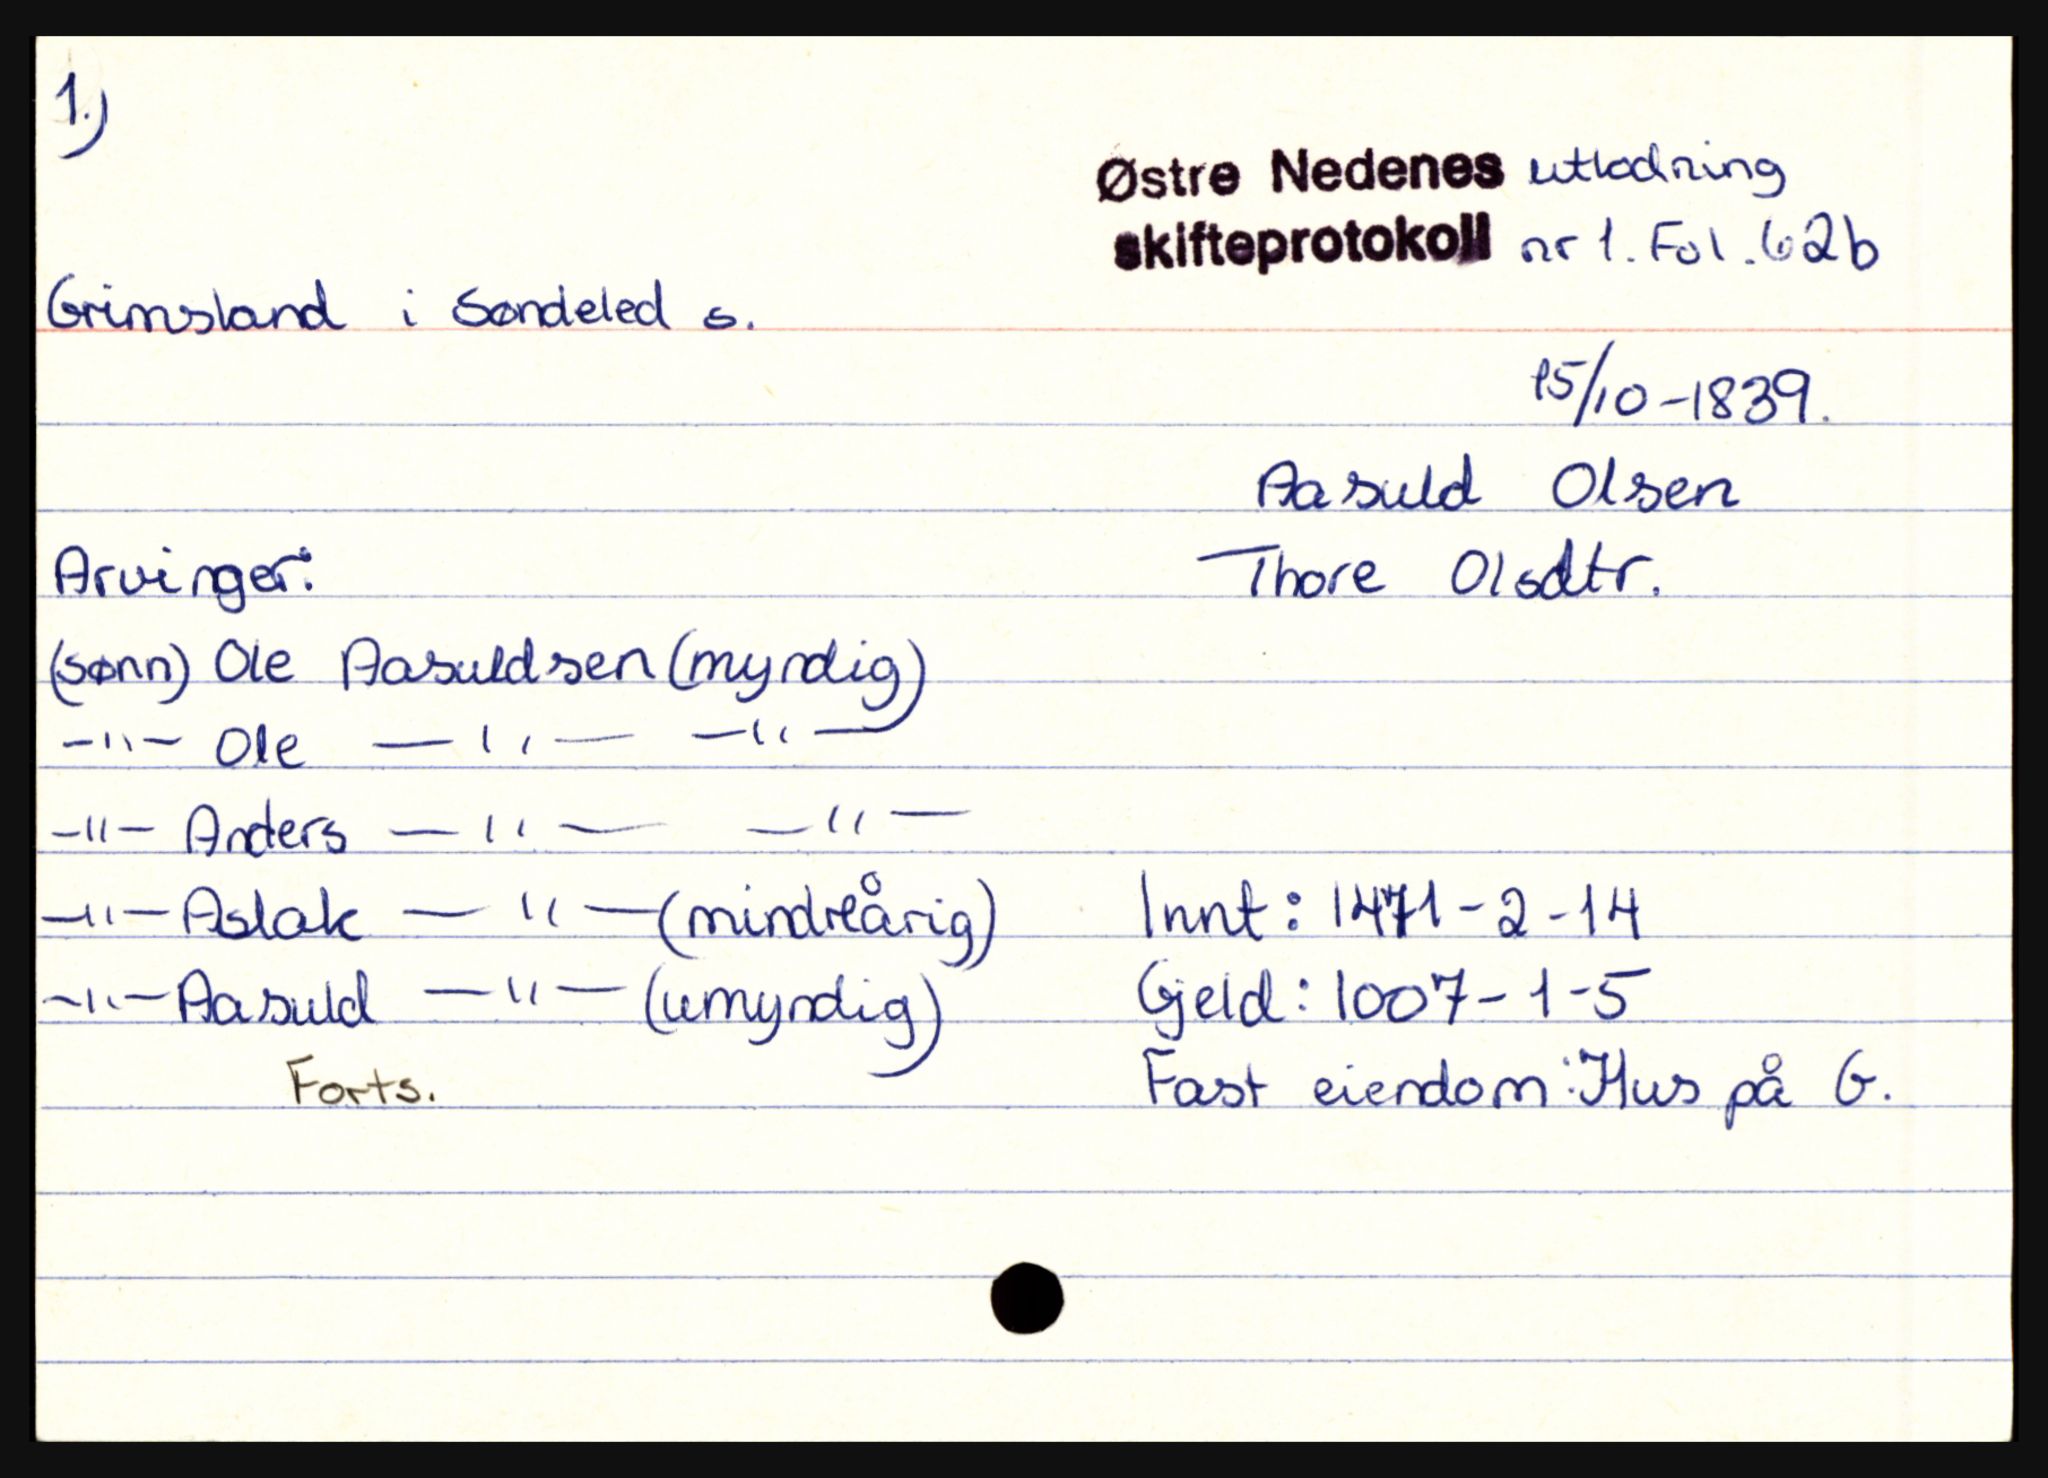 1.)
Østre Nedenes utlodning
skifteprotokoll nr 1. Fol. 62b
Grimsland i Søndeled s.
15/10-1839.
Aasuld Olsen
Arvinger:
Thore Olsdtr.
(sønn) Ole Aasuldsen (myndig)
—"— Ole —"— —"—
—"— Anders —"— —"—
—"— Aslak —"— (mindreårig)
Innt: 1471-2-14
—"— Aasuld —"— (umyndig)
Gjeld: 1007-1-5
Forts.
Fast eiendom: Hus på G.